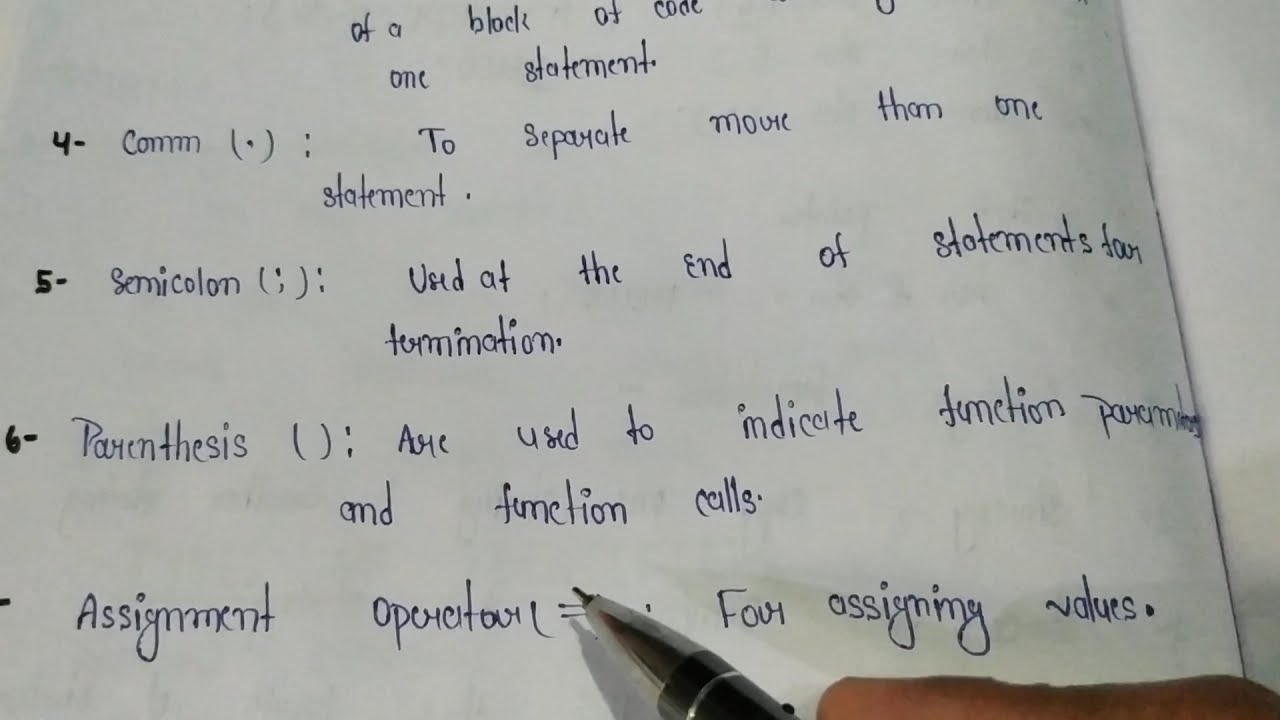 of a block of code
one statement.
4- Comm (.) : To separate moure than one
statement.
5- Semicolon (;): Used at the End of statements four
termination.
6- Parenthesis (): Are used to indicate function
and function calls.
- Assignment Operatour (= : Four assigning values.